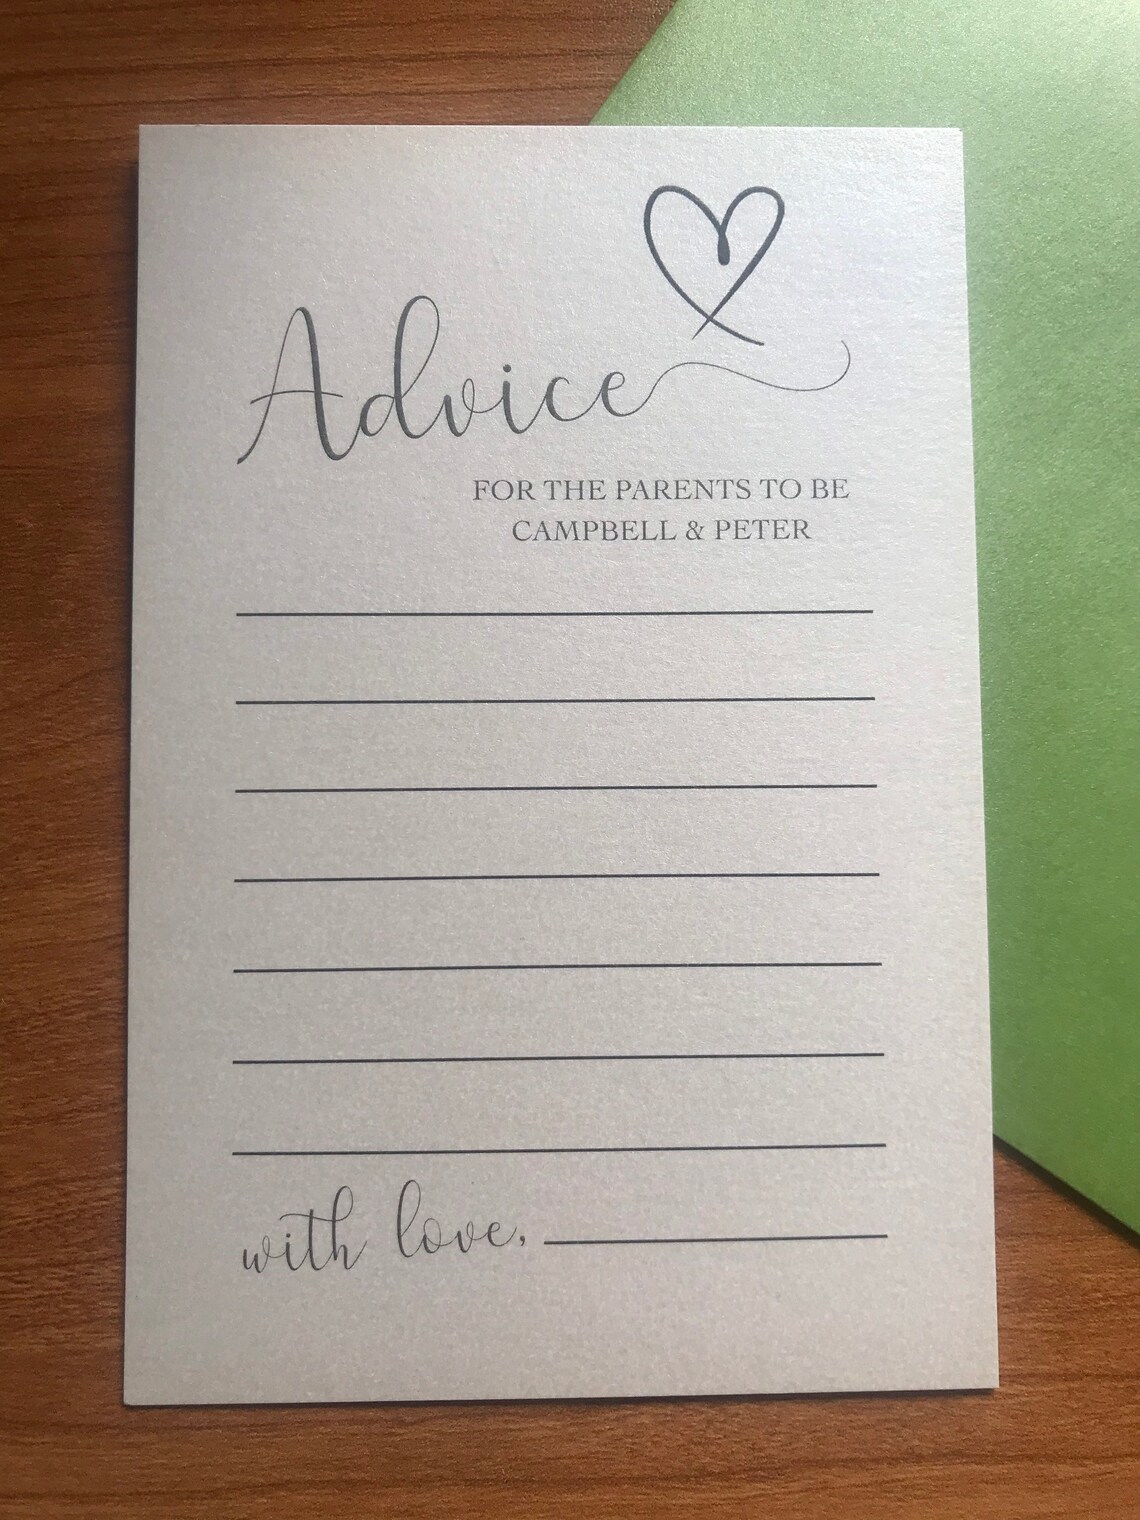 Advice
FOR THE PARENTS TO BE
CAMPBELL & PETER
with love,